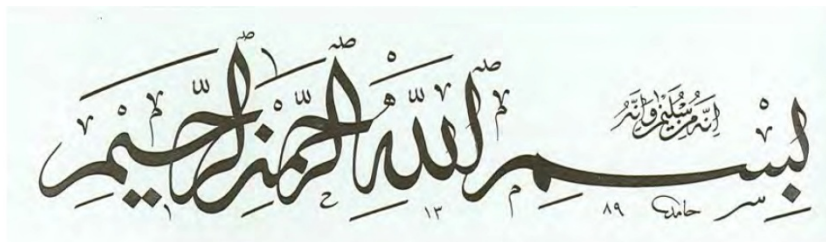 اِنَّهُ مِنْ سُلَيْمٰنَ وَاِنَّهُ
بِسْمِ اللّٰهِ الرَّحْمٰنِ الرَّحِيمِ
حامد ١٣٨٩